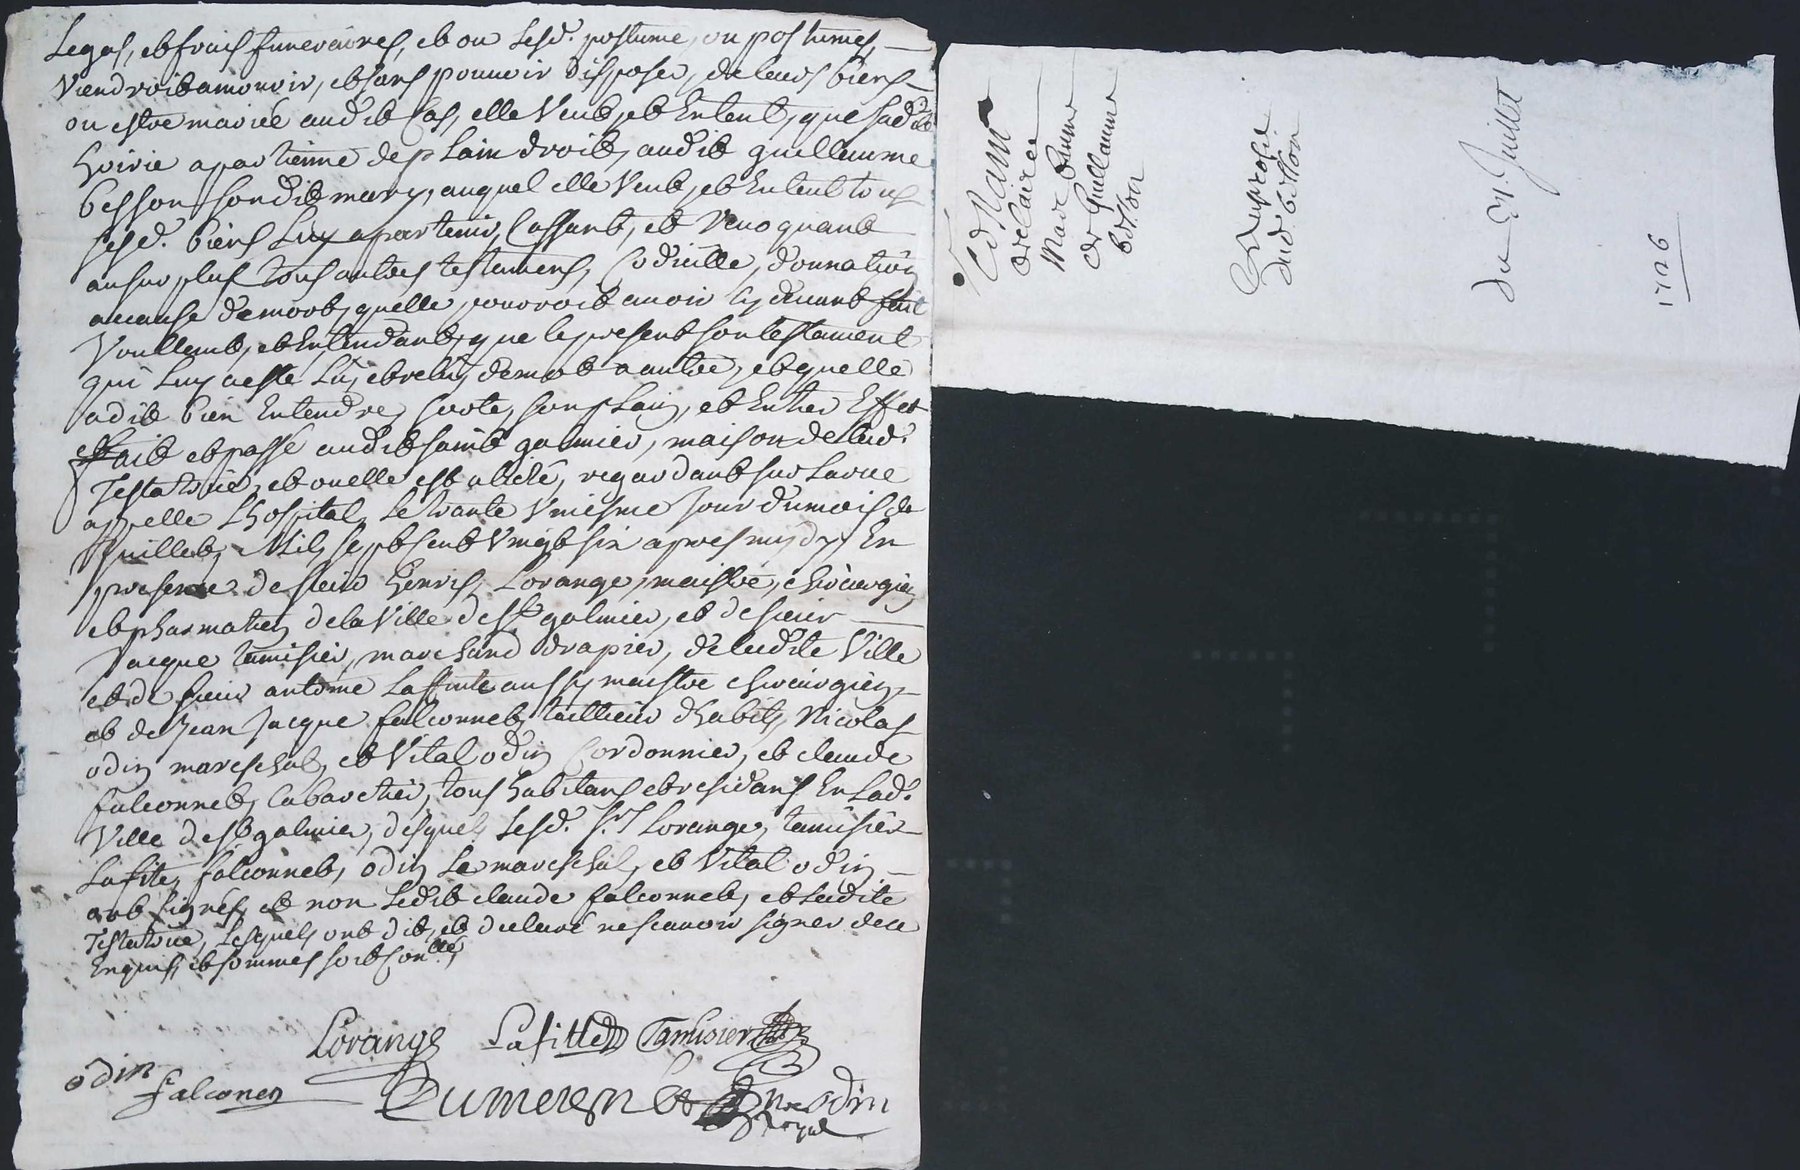 Legas, et frais funeraires, et ou sesd. postume, ou postumes,
Viendroit amourir, et sans pouvoir disposer, de leurs biens
ou estre mariée audit Cas, elle Veut, et Entent, que sad. 
hoirie apartienne de plain droit, audit guilleaume
besson sondit mary, auquel elle Veut, et Entent tous
sesd. biens Luy apartenir, Cassant, et Revoquant
au surplus tous autres testamens, Codicille, donnation
acause demort, quelle pourroit avoir Cy devant fait
Voullant, et Entendant, que le present son testament
qui Luy aesté Lû, et relû, de mot a autre, et quelle
adit bien Entendre, sorte, son plain, et Entier Effet
fait et passé audit saint galmier, maison de lad.
Testatrice, et ou elle est alicté, regardant sur La rue
appellé L'hospital, Le trante Uniesme Jour du mois de
Juillet, Mil sept sent Vingt six apres mydy, En
presence de sieur henris Lorange, maistre, chirurgien
et pharmatien de la Ville de st galmier, et de sieur
Jacque tamisier, marchand drapier, de ladite Ville
et de sieur antoine Laffitte aussy maistre chirurgien
et de Jean Jacque falconnet, taillieur d'habits, Nicolas
odin mareschal, et Vital odin Cordonnier, et claude
falconnet, Cabaretier, tous habitans et residans En Lad.
Ville de st galmier, desquels Lesd. srs Lorange, tamisier
Lafite, falconnet, odin Le mareschal, et Vital odin
ont signés, et non Ledit claude falconnet, et Ladite
Testatrice, Lesquels ont dit, et declaré ne scavoir signer de ce
Enquis, et sommes soit Conllé,
Lorange Lafitte Tamisier
odin
falconet
odin
royal
de claire
de Guillaume
besson
du 31 Juillet
1726